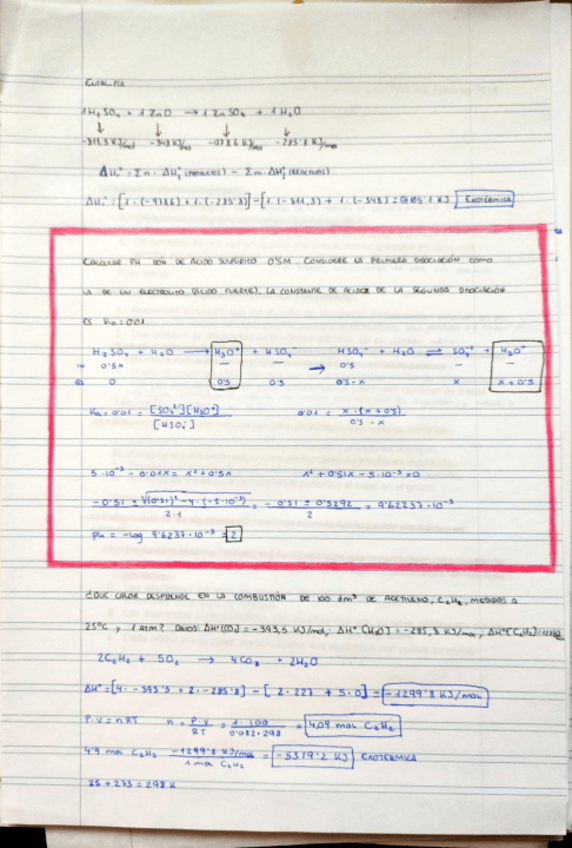 ENTALPÍA
1H₂SO₄ + 1ZnO → 1ZnSO₄ + 1H₂O
↓ ↓ ↓ ↓
-811,3 KJ/mol -348 KJ/mol -978'6 KJ/mol -285'8 KJ/mol
ΔHr° = Σn · ΔHf° (PRODUCTOS) - Σm · ΔHf° (REACTIVOS)
ΔHr° = [1 · (-978'6) + 1 · (-285'8)] - [1 (-811,3) + 1 · (-348)] = 105'1 KJ EXOTÉRMICA
CALCULAR PH DE ÁCIDO SULFÚRICO 0'5M. CONSIDERE LA PRIMERA DISOCIACIÓN COMO
LA DE UN ELECTROLITO (ÁCIDO FUERTE), LA CONSTANTE DE ACIDEZ DE LA SEGUNDA DISOCIACIÓN
ES Ka = 0.01
H₂SO₄ + H₂O → H₃O⁺ + HSO₄⁻ → HSO₄⁻ + H₂O ⇌ SO₄²⁻ + H₃O⁺
0'5 — — 0'5 — —
0 0'5 0'5 0'5 - x x x + 0'5
Ka = 0'01 = [SO₄²⁻][H₃O⁺] / [HSO₄⁻] 0'01 = x · (x + 0'5) / 0'5 - x
5 · 10⁻³ - 0.01x = x² + 0'5x x² + 0'51x - 5 · 10⁻³ = 0
-0'51 ± √(0'51)² - 4 · (-5 · 10⁻³) / 2 · 1 = -0'51 ± 0'5292 / 2 = 9'62237 · 10⁻³
PH = -log 9'6237 · 10⁻³ = 2
¿QUE CALOR DESPRENDE EN LA COMBUSTIÓN DE 100 dm³ DE ACETILENO, C₂H₂, MEDIDOS A
25°C y 1 atm? DATOS: ΔH° (CO₂) = -393,5 KJ/mol, ΔH° (H₂O) = -285,8 KJ/mol, ΔH° (C₂H₂) =
2C₂H₂ + 5O₂ → 4CO₂ + 2H₂O
ΔH° = [4 · -393'5 + 2 · -285'8] - [2 · 227 + 5 · 0] = -1299'8 KJ/mol
P · V = nRT n = P · V / RT = 1 · 100 / 0'082 · 298 = 4,09 mol C₂H₂
4'9 mol C₂H₂ -1299'8 KJ/mol / 1 mol C₂H₂ = -5319'2 KJ EXOTÉRMICA
25 + 273 = 298 K